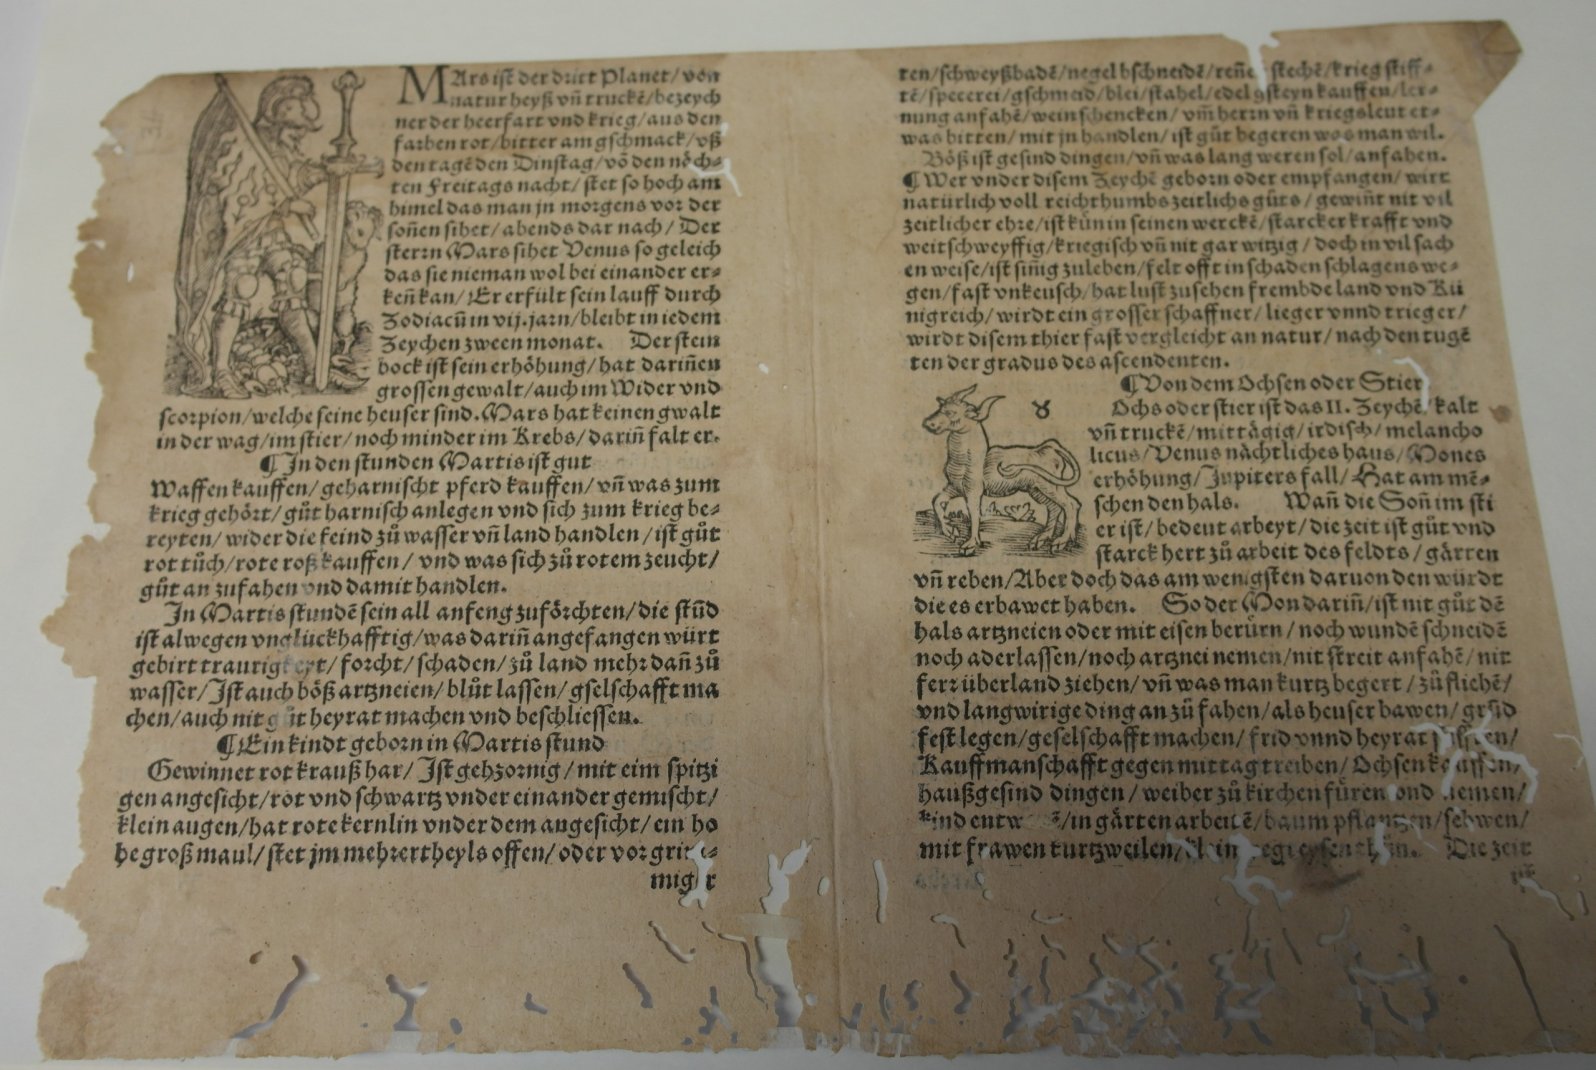 MArs ist der dritt Planet/ von
natur heyß vñ truckē/ bezeych
ner der heerfart vnd krieg/ aus den
farben rot/ bitter am gschmack/ vß
den tagē den Dinstag/ vō den nöch⸗
ten Freitags nacht/ stet so hoch am
himel das man jn morgens vor der
soñen sihet/ abends dar nach/ Der
sterrn Mars sihet Venus so geleich
das sie nieman wol bei einander er⸗
keñ kan/ Er erfült sein lauff durch
Zodiacū in vij. jarn/ bleibt in iedem
Zeychen zween monat. Der stein
bock ist sein erhöhung/ hat dariñen
grossen gewalt/ auch im Wider vnd
scorpion/ welche seine heuser sind. Mars hat keinen gwalt
in der wag/ im stier/ noch minder im Krebs/ dariñ falt er.
¶ In den stunden Martis ist gut
Waffen kauffen/ geharnischt pferd kauffen/ vñ was zum
krieg gehört/ gůt harnisch anlegen vnd sich zum krieg be⸗
reyten/ wider die feind zů wasser vñ land handlen/ ist gůt
rot tůch/ rote roß kauffen/ vnd was sich zů rotem zeucht/
gůt an zufahen vnd damit handlen.
In Martis stundē sein all anfeng zuförchten/ die stūd
ist alwegen vnglückhafftig/ was dariñ angefangen würt
gebirt traurigkeyt/ forcht/ schaden/ zů land mehr dañ zů
wasser/ Ist auch böß artzneien/ blůt lassen/ gselschafft ma
chen/ auch nit gůt heyrat machen vnd beschliessen.
¶ Ein kindt geborn in Martis stund
Gewinnet rot krauß har/ Ist gehzornig/ mit eim spitzi
gen angesicht/ rot vnd schwartz vnder einander gemischt/
klein augen/ hat rote kernlin vnder dem angesicht/ ein ho
he groß maul/ stet jm mehrertheyls offen/ oder vor
ten/ schweyßbadē/ negel bschneidē/ stechē/ krieg stiff⸗
tē/ specerei/ gschmeid/ blei/ stahel/ edel gsteyn kauffen/ ler⸗
nung anfahē/ wein schencken/ vm̄ herrn vñ kriegsleut et⸗
was bitten/ mit jn handlen/ ist gůt begeren was man wil.
Böß ist gesind dingen/ vñ was lang weren sol/ anfahen.
¶ Wer vnder disem Zeychē geborn oder empfangen/ wirt
natürlich voll reichthumbs zeitlichs gůts/ gewiñt nit vil
zeitlicher ehre/ ist kün in seinen werckē/ starcker krafft vnd
weitschweyffig/ kriegisch vñ nit gar witzig/ doch in vil sach
en weise/ ist siñig zuleben/ felt offt in schaden schlagens we⸗
gen/ fast vnkeusch/ hat lust zusehen frembde land vnd Kü
nigreich/ wirdt ein grosser schaffner/ lieger vnnd trieger/
wirdt disem thier fast vergleicht an natur/ nach den tugē
ten der gradus des ascendenten.
¶ Von dem Ochsen oder Stier
♉ Ochs oder stier ist das II. Zeychē/ kalt
vñ truckē/ mittägig/ irdisch/ melancho
licus/ Venus nächtliches haus/ Mones
erhöhung/ Jupiters fall/ Hat am mē⸗
schen den hals. Wañ die Soñ im sti
er ist/ bedeut arbeyt/ die zeit ist gůt vnd
starck hert zů arbeit des feldts/ gärten
vñ reben/ Aber doch das am wenigsten daruon den würdt
die es erbawet haben. So der Mon dariñ/ ist nit gůt dē
hals artzneien oder mit eisen berürn/ noch wundē schneidē
noch aderlassen/ noch artznei nemen/ nit streit anfahē/ nit
ferr überland ziehen/ vñ was man kurtz begert/ zů fliehē/
vnd langwirige ding an zů fahen/ als heuser bawen/ grūd
fest legen/ geselschafft machen/ frid vnnd heyrat
Kauffmanschafft gegen mittag treiben/ Ochsen kauffen/
haußgesind dingen/ weiber zů kirchen füren vnd nemen/
kind in gärten arbeitē/ baum pflantzen/ sehwen/
mit frawen kurtzweilen/ Die zeit